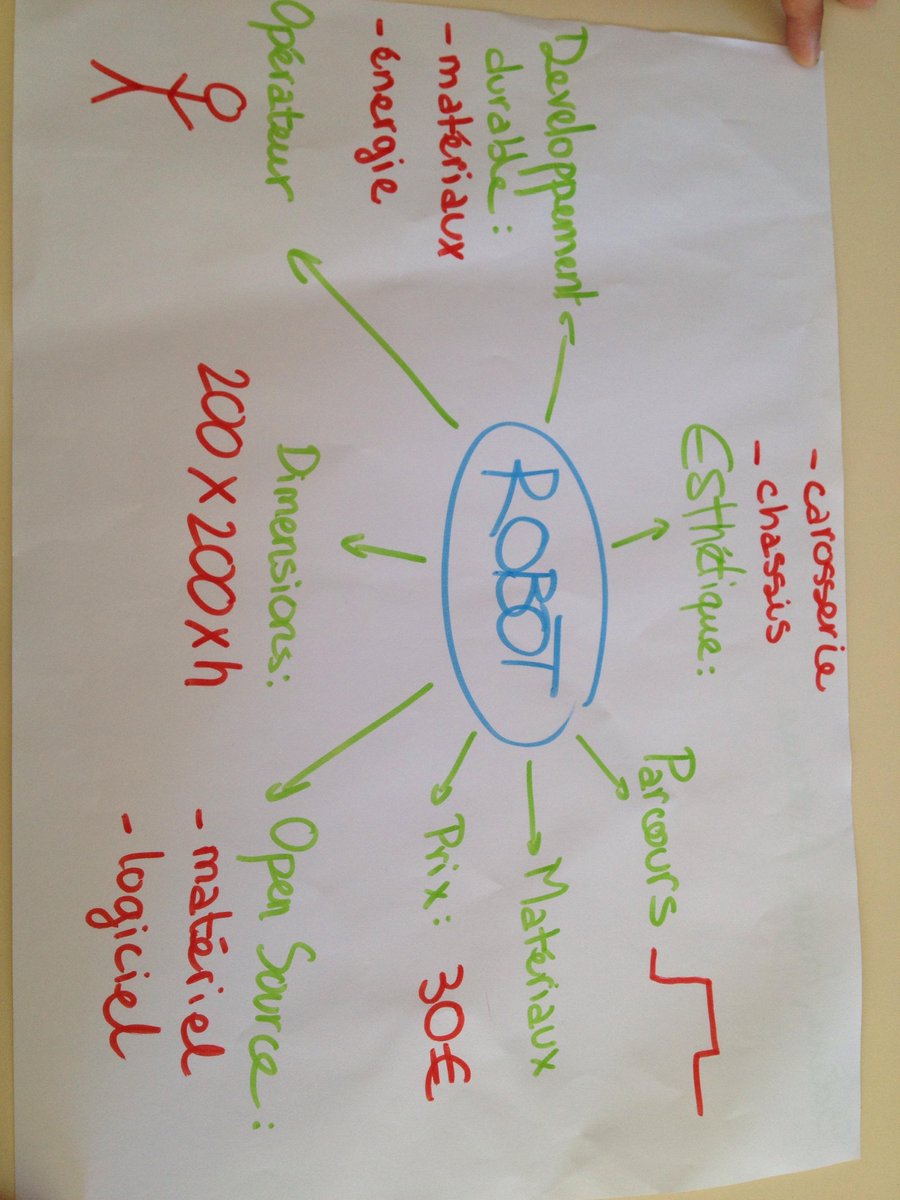 - carosserie
- chassis
Esthétique:
Developpement
durable:
- matériaux
- énergie
Parcours
ROBOT
Matériaux
Prix: 30€
Opérateur
Dimensions:
200 x 200 x h
Open Source:
- matériel
- logiciel